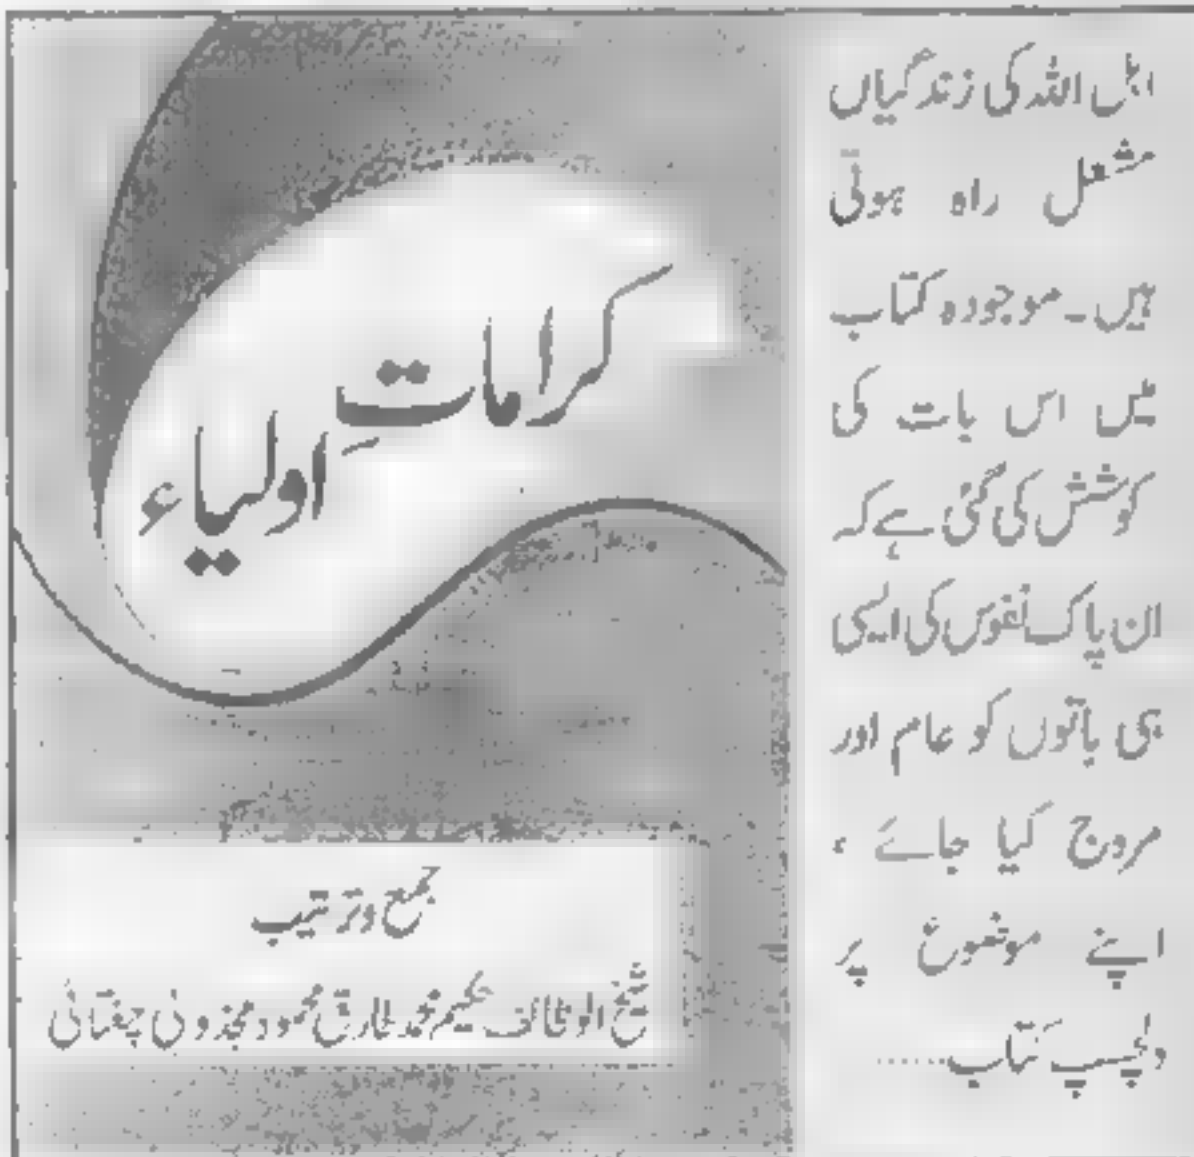 اہل اللہ کی زندگیاں
مشعل راہ ہوتی
ہیں۔ موجودہ کتاب
میں اس بات کی
کوشش کی گئی ہے کہ
ان پاک نفوس کی ایسی
ہی باتوں کو عام اور
مروج کیا جائے ،
اپنے موضوع پر
دلچسپ کتاب......
کراماتِ اولیاء
جمع و ترتیب
شیخ الوظائف حکیم محمد طارق محمود مجذوبی چغتائی